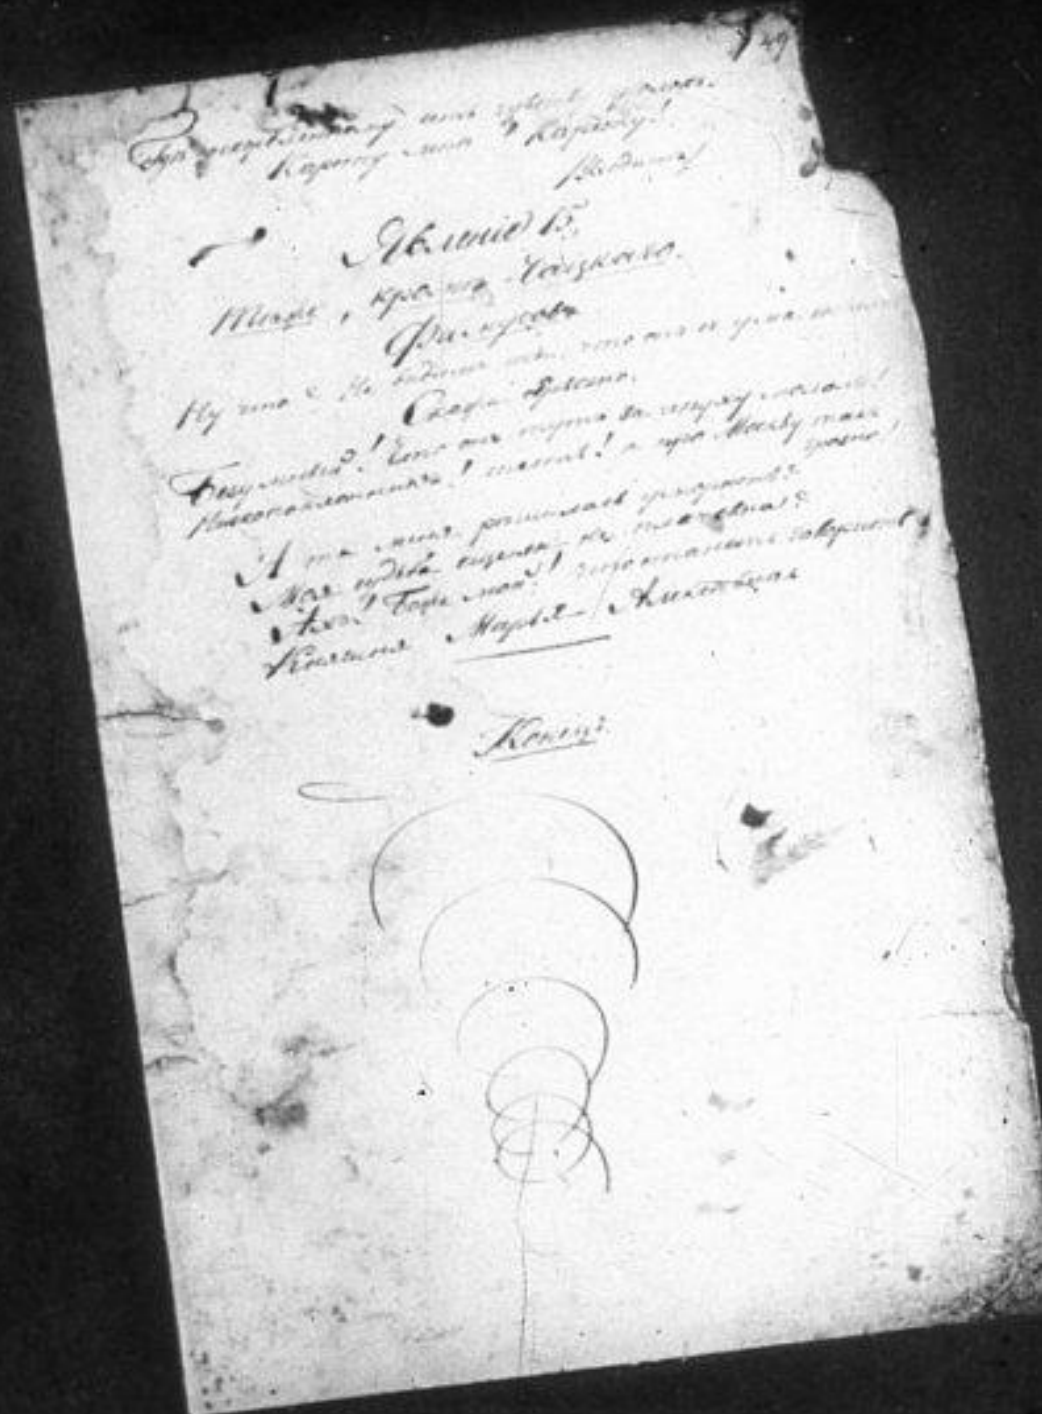 49
Гдѣ оскорбленному есть чувству уголокъ.
Карету мнѣ! Карету!
Явленіе 15.
Тѣже, кромѣ Чацкаго.
Фамусовъ
Ну что? Не видишь ты, что онъ съ ума
Скажи
Безумный! Что онъ тутъ за чепуху мололъ!
Низкопоклонникъ! тесть! и про Москву такъ
грозно!
А ты меня рѣшилась уморить?
Моя судьба еще ли не плачевна?
Ахъ! Боже мой! что станетъ говорить
Княгиня Марья Алексѣвна
Конецъ.